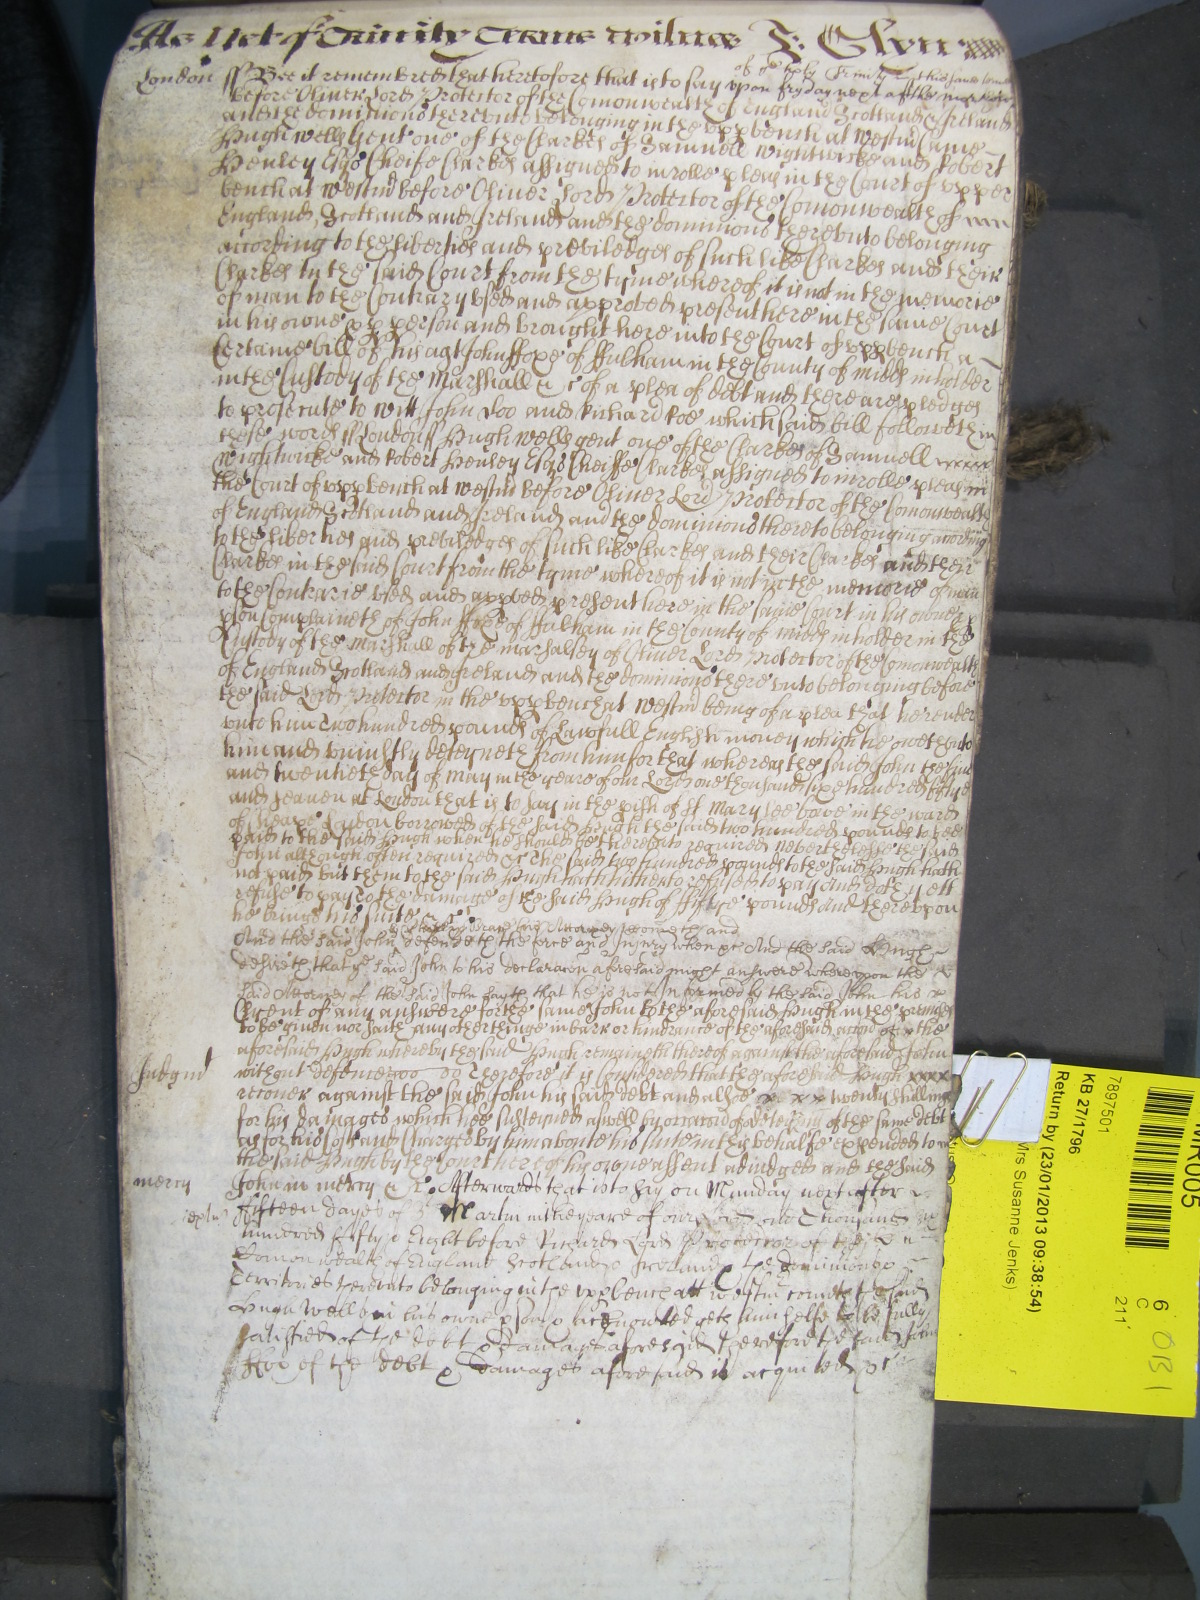 As Yet of Trinity Terme witnes J: Glyn
London ss Bee it remembred that heretofore that is to say upon fryday next after the morrow
of ye holy Trinity this same terme
before Oliver Lord Protector of the Comonwealth of England Scotland & Ireland
and the dominions thereunto belonging in the upp bench at Westm Came
Hugh Wells gent one of the Clarkes of Samuell Wightwicke and Robert
Henley Esqs Cheife Clarkes assigned to inrolle pleas in the Court of upper
bench at Westm before Oliver Lord Protector of the Comonwealth of
England, Scotland and Ireland and the dominions thereunto belonging
according to the liberties and previledges of such like Clarkes and their
Clarkes in the said Court from the tyme whereof it is not in the memorie
of man to the Contrary used and approved present here in the same Court
in his owne pp person and brought here into the Court of upp bench a
Certaine bill of his agt John Foxe of Fulham in the County of Midds inholder
in the Custody of the Marshall &c of a plea of debt and there are pledges
to prosecute to witt John Doo and Richard Roe which said bill followeth in
these words ss London ss Hugh Wells gent one of the Clarkes of Samuell
Wightwicke and Robert Henley Esqs Cheiffe Clarkes assigned to inrolle pleas in
the Court of upp bench at Westm before Oliver Lord Protector of the Comonwealth
of England Scotland and Ireland and the dominions thereto belonging according
to the liberties and previledges of such like Clarkes and their Clarkes and their
Clarkes in the said Court from the tyme whereof it is not in the memorie of man
to the Contrarie used and appved present here in the same Court in his owne
pson Complaineth of John Foxe of Fulham in the County of Midds inholder in the
Custody of the Marshall of the Marshalsey of Oliver Lord Protector of the Comonwealth
of England Scotland and Ireland and the dominions there unto belonging before
the said Lord Protector in the upp bench at Westm being of a plea that he render
unto him two hundred pounds of Lawfull English money which he oweth unto
him and uniustly deteyneth from him for that whereas the said John the
and twentieth day of May in the yeare of our Lord one thousand sixe hundred fiftye
and seaven at London that is to say in the pish of St Mary Lee bowe in the ward
of Cheape London borrowed of the said Hugh the said two hundred pounds to bee
paid to the said Hugh when he should be thereunto required Neverthelesse the said
John although often required &c the said two hundred pounds to the said Hugh hath
not paid but them to the said Hugh hath hitherto refused to pay and doth yett
refuse to pay to the damage of the said Hugh of fiftye pounds and thereupon
he brings his suite &c
his Attorney cometh and
And the said John defendeth the force and Injury when &c And the said Hugh
desireth that ye said John to his declaracon aforesaid might answere whereupon the
said Attorney of the said John sayth that he is not Informed by the said John his
Clyent of any answere for the same John to the aforesaid Hugh in the premisses
to be given nor saith any other thinge in barr or hinderance of the aforesaid accon of the
aforesaid Hugh whereby the said Hugh remaineth thereof against the aforesaid John
Judgmt without defence Therefore it is considered that the aforesaid Hugh
recover against the said John his said debt and alsoe twenty shillings
for his damages which hee susteyned aswell by occasion of deteyning of the same debt
as for his Costs and Charges by him aboute his suite in this behalfe expended to
the said Hugh by the Court here of his owne assent adiudged and the said
mercy John in mercy &c. Afterwards that is to say on Munday next after
fifteen dayes of St Martin in the yeare of our Lord one Thousand six
hundred fiftye Eight before Richard Lord Protector of the
Comonwealth of England Scotland & Ireland & the dominions &
Territories thereunto belonging in the upp bench att Westm cometh the said
Hugh Wells in his owne pson & acknowledgeth himselfe to be fully
satisfied of the debt & damages aforesaid therefore the said John
Fox of the debt & damages aforesaid is acquitted &c
7897501
KB 27/1796
Return by (23/01/2013 09:38:54)
Mrs Susanne Jenks)
MR005
6
C
211
0131